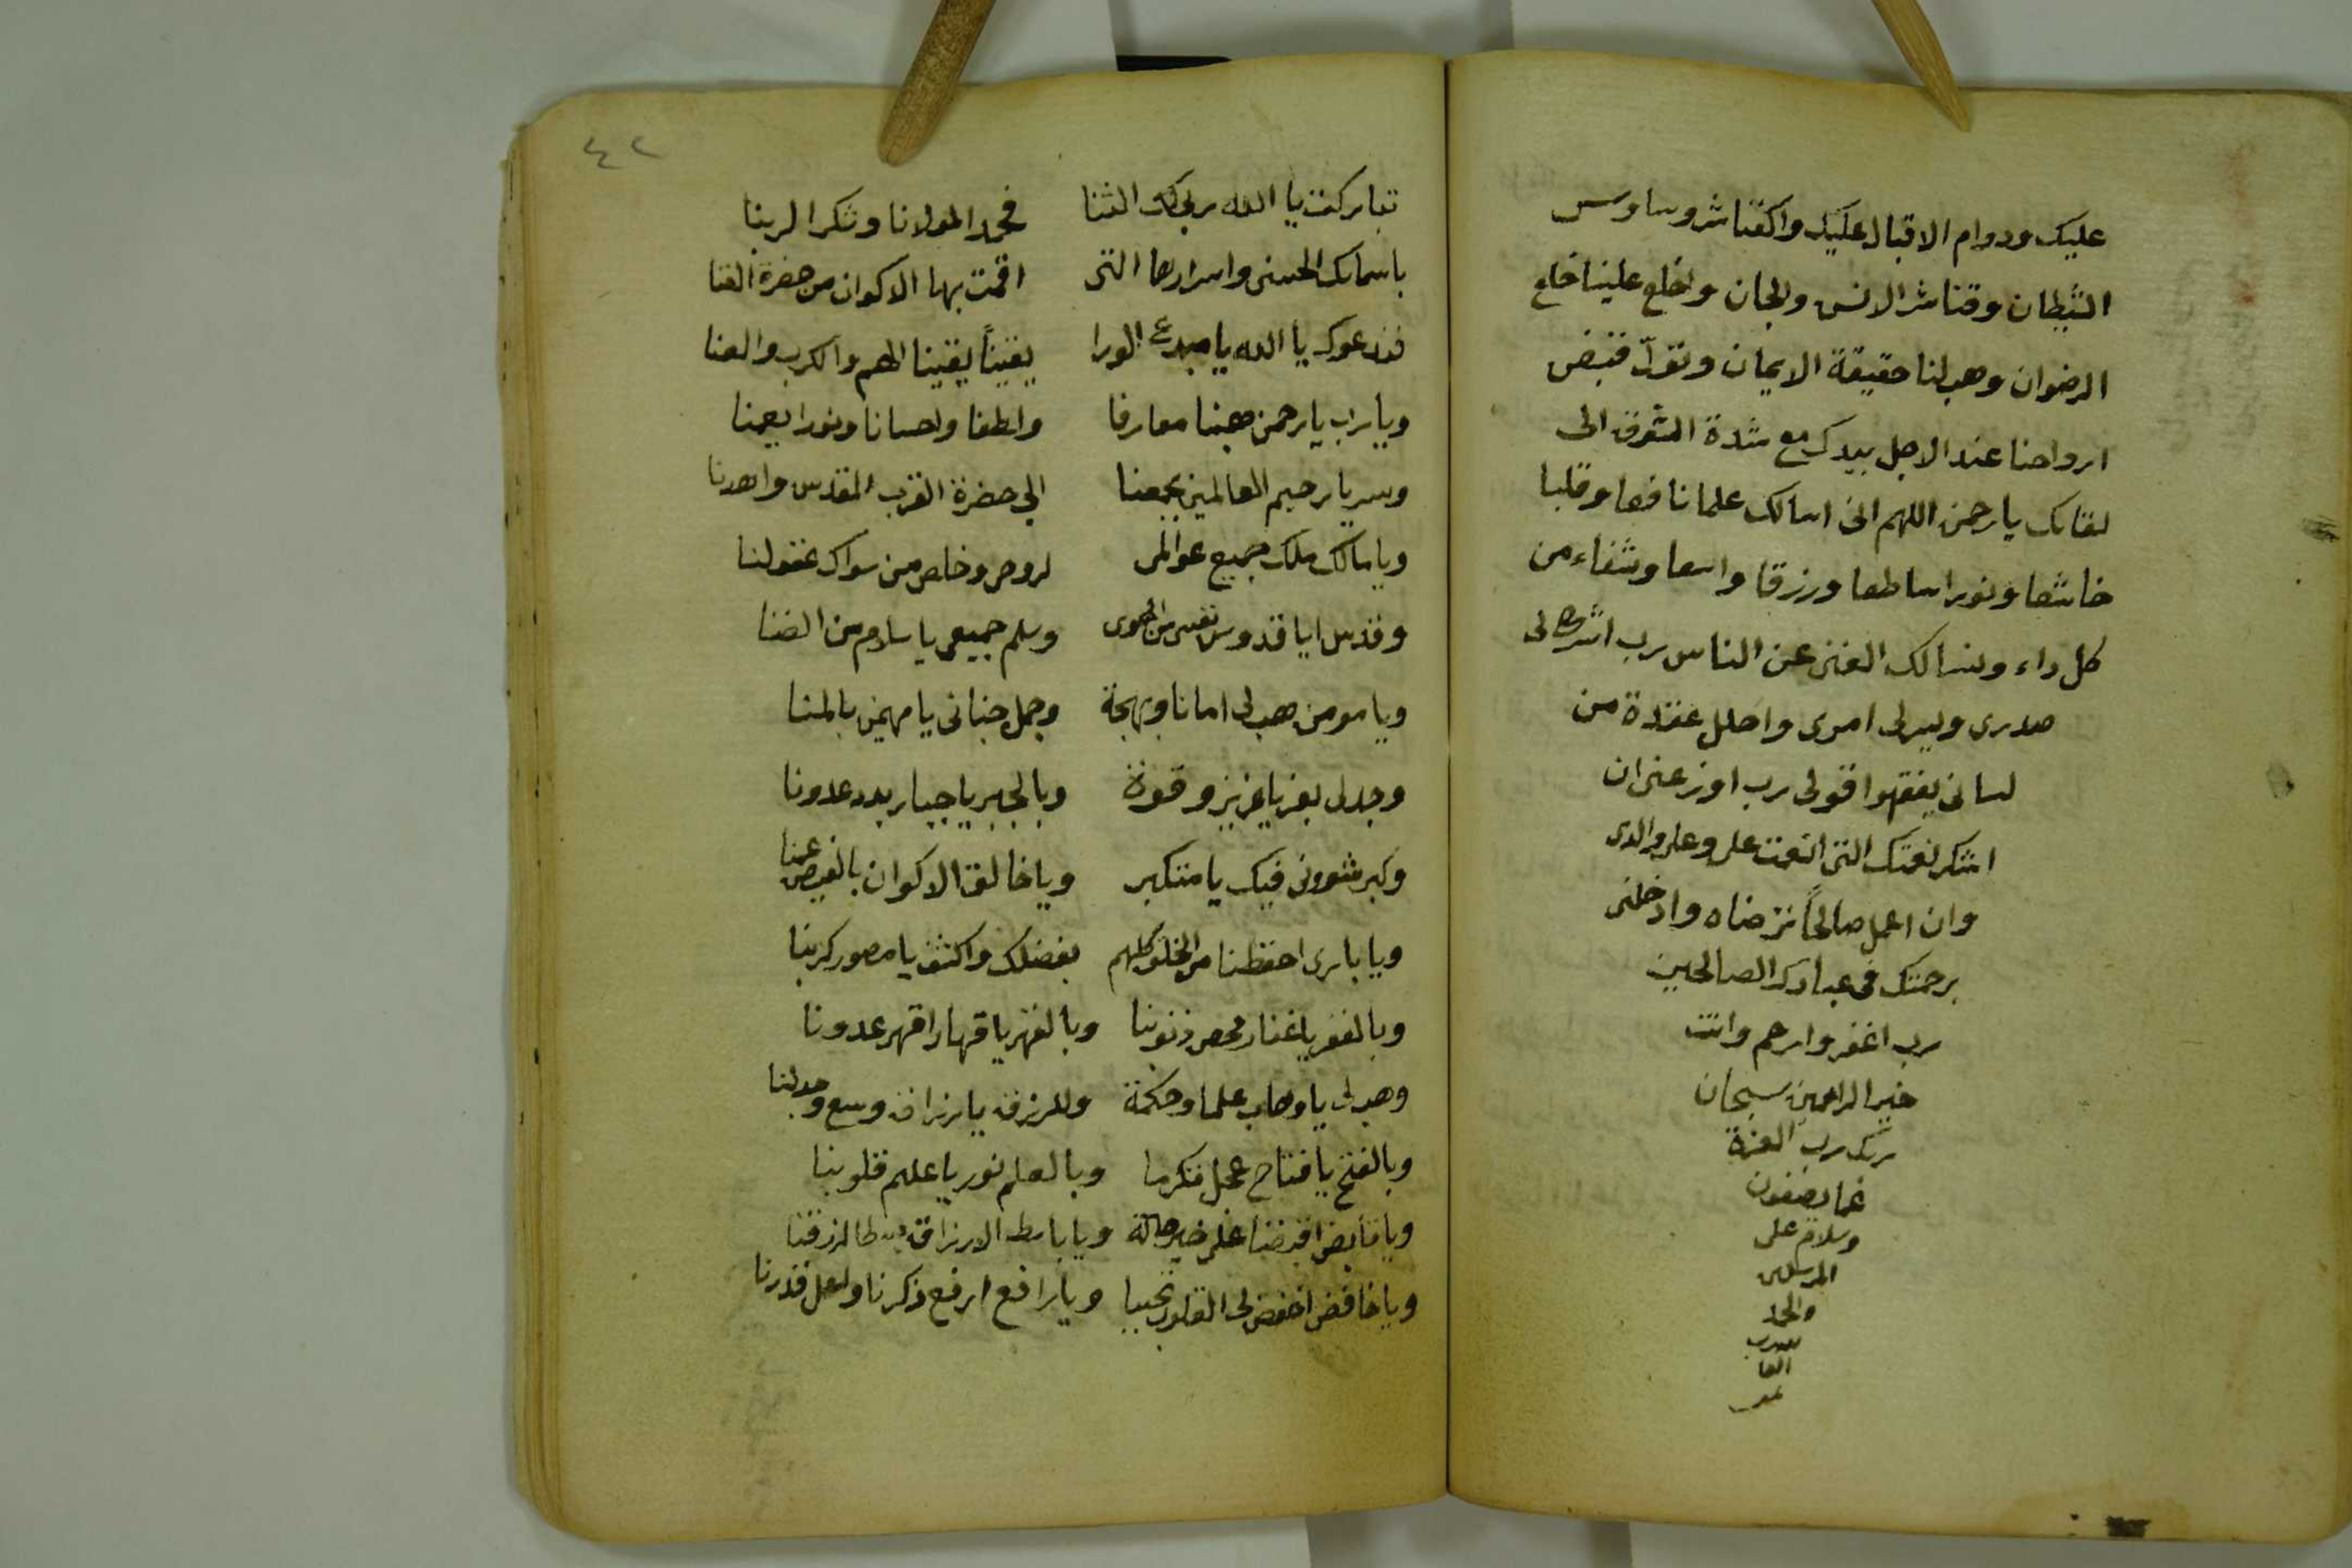 عليك ودوام الاقبال عليك واكفنا شر وساوس
الشيطان وقنا شر الانس والجان واخلع علينا خلع
الرضوان وهب لنا حقيقة الايمان وتولّ قبض
ارواحنا عند الاجل بيدك مع شدة الشوق الى
لقائك يا رحمن اللهم انى اسالك علما نافعا وقلبا
خاشعا ونورا ساطعا ورزقا واسعا وشفاء من
كل داء ونسالك الغنى عن الناس رب اشرح لى
صدرى ويسر لى امرى واحلل عقدة من
لسانى يفقهوا قولى رب اوزعنى ان
اشكر نعمتك التى انعمت على وعلى والدى
وان اعمل صالحاً ترضاه وادخلنى
برحمتك فى عبادك الصالحين
رب اغفر وارحم وانت
خير الراحمين سبحان
ربك رب العزة
عما يصفون
وسلام على
المرسلين
والحمد
لله رب
العا
لمين
٤٢
تباركت يا الله ربى لك الثنا فحمدا لمولانا وشكرا لربنا
باسمائك الحسنى واسرارها التى اقمت بها الاكوان من حضرة الفنا
فندعوك يا الله يا مبدع الورا يقيناً يقينا الهم والكرب والعنا
ويا رب يا رحمن هبنا معارفا ولطفا واحسانا ونورا يعمنا
وسر يا رحيم العالمين بجمعنا الى حضرة القرب المقدس واهدنا
ويا مالك ملك جميع عوالمى لروحى وخلص من سواك عقولنا
وقدس ايا قدوس نفسى من الهوى وسلم جميعى يا سلام من الضنا
ويا مومن هب لى امانا وبهجة وجمل جنانى يا مهيمن بالمنا
وجد لى بعز يا عزيز وقوة وبالجبر يا جبار بدد عدونا
وكبر شوونى فيك يا متكبر ويا خالق الاكوان بالفيض عمنا
ويا بارى احفظنا من الخلق كلهم بفضلك واكشف يا مصور كربنا
وبالغفر يا غفار محص ذنوبنا وبالقهر يا قهار اقهر عدونا
وهب لى يا وهاب علما وحكمة وللرزق يا رزاق وسع وجد لنا
وبالفتح يا فتاح عجل تكرما وبالعلم نور يا عليم قلوبنا
ويا قابض اقبضنا على خير حالة ويا باسط الارزاق بسطا لرزقنا
ويا خافض اخفض لى القلوب تحببا ويا رافع ارفع ذكرنا واعل قدرنا